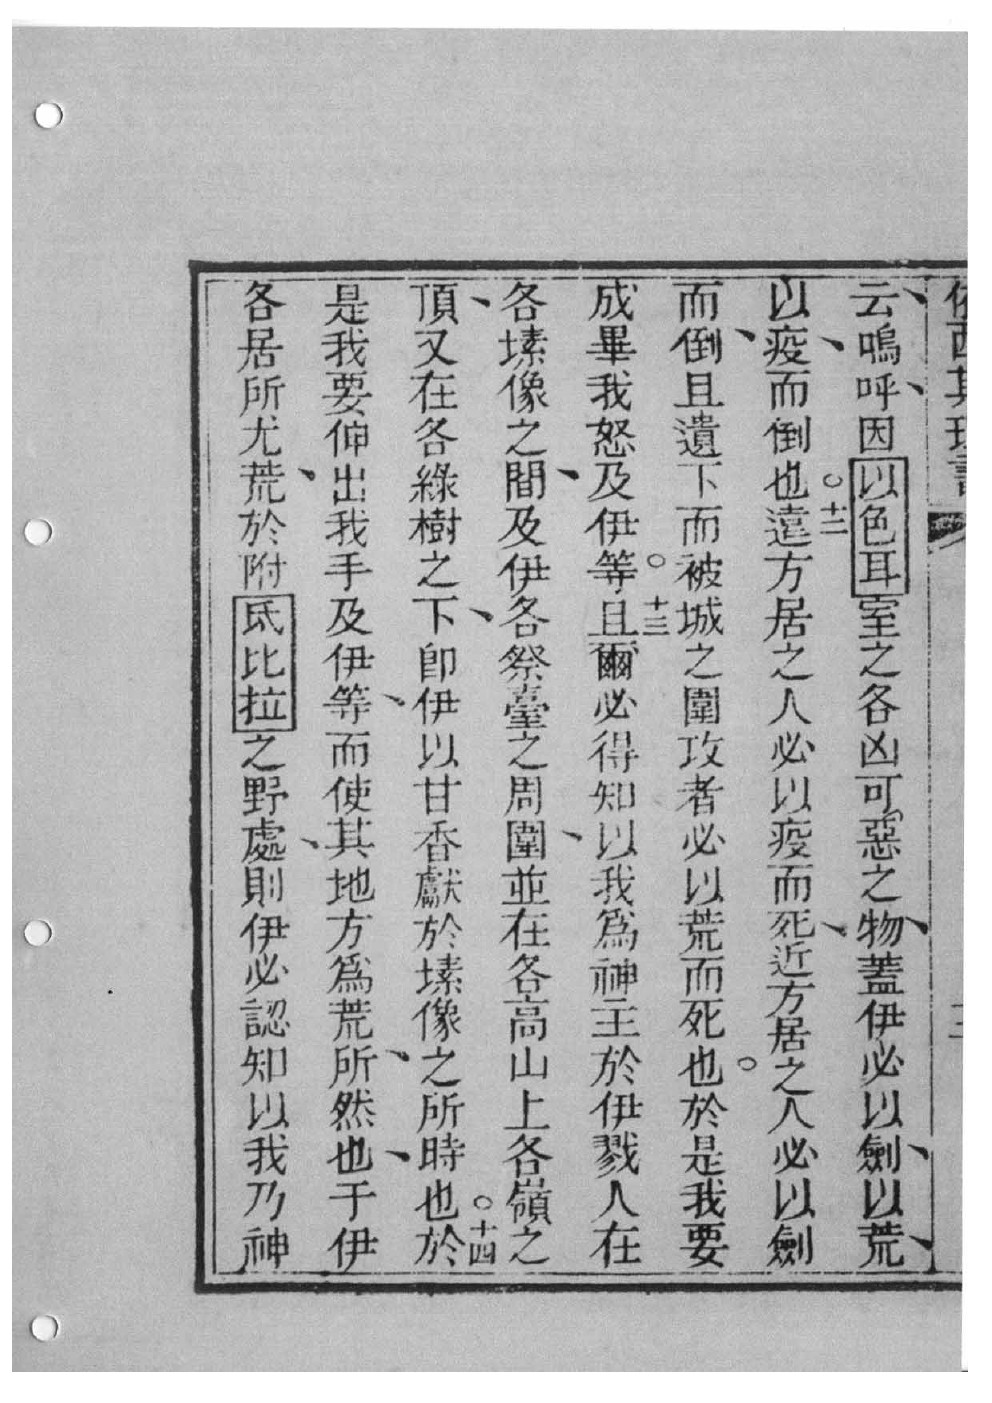 云、嗚呼、因以色耳室之各凶可惡之物、蓋伊必以劍、以荒、
以疫、而倒也。十二遠方居之人必以疫而死、近方居之人必以劍
而倒、且遺下而被城之圍攻者必以荒而死也。於是我要
成畢我怒及伊等。十三且爾必得知以我為神主於伊戮人在
各塑像之間、及伊各祭臺之周圍、並在各高山上各嶺之
頂、又在各綠樹之下、即伊以甘香獻於塑像之所時也。十四於
是我要伸出我手及伊等、而使其地方為荒所、然也、于伊
各居所尤荒、於附氐比拉之野處、則伊必認知以我乃神